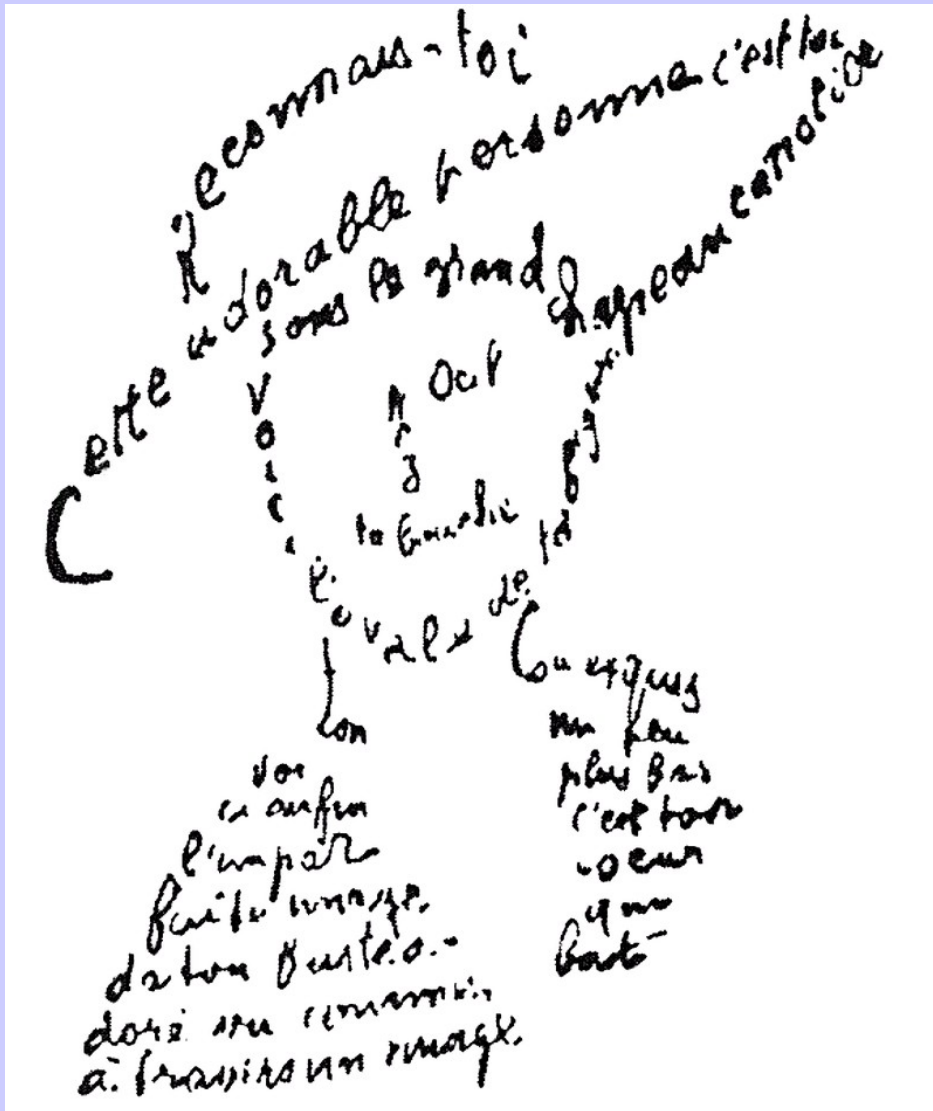 Reconnais-toi
Cette adorable personne c'est toi
sous le grand chapeau canotier
Oeil
Nez
ta bouche
Voici l'ovale de ta figure
Ton
Cou exquis
Voi
ci enfin
l'impar
faite image
de ton buste a-
doré vu comme
à travers un nuage
un peu
plus bas
c'est ton
coeur
qui
bat